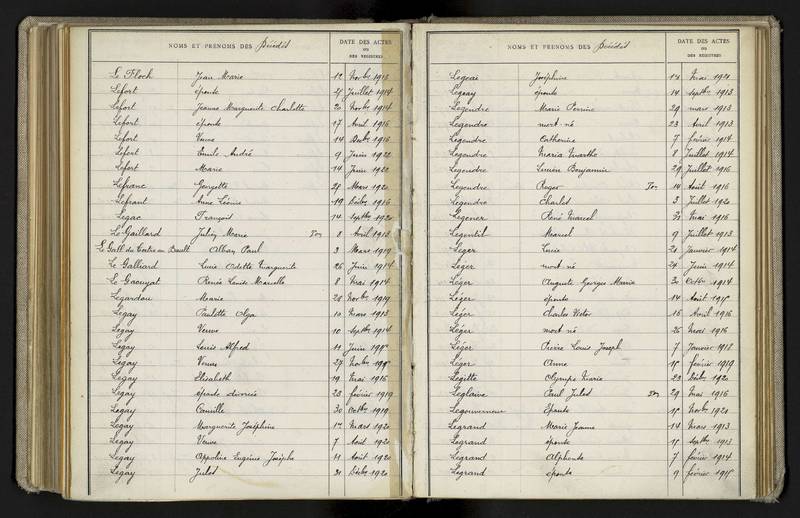 NOMS ET PRÉNOMS DES Décédés
DATE DES ACTES
OU
DES REGISTRES
Le Floch Jean Marie 12 Novbre 1913
Lefort épouse 25 Juillet 1914
Lefort Jeanne Marguerite Charlotte 20 Novbre 1914
Lefort épouse 17 Avril 1916
Lefort Veuve 14 Décbre 1916
Lefort Emile André 9 Juin 1920
Lefort Marie 14 Juin 1920
Lefranc Georgette 28 Mars 1920
Lefrant Anne Léonie 19 Décbre 1916
Legac François 14 Septbre 1920
Le Gaillard Julien Marie Ton 8 Avril 1913
Albany Paul 3 Mars 1919
Le Galliard Lucie Odette Marguerite 26 Juin 1914
Le Gaouyat Renée Louise Marcelle 8 Mai 1914
Legardou Marie 28 Novbre 1919
Legay Paulette Olga 10 Mars 1913
Legay Veuve 10 Septbre 1914
Legay Louis Alfred 11 Juin
Legay Veuve 27 Novbre
Legay Elisabeth 19 Mai 1916
Legay épouse divorcée 23 février 1919
Legay Camille 30 Octbre 1919
Legay Marguerite Joséphine 12 Mars 1920
Legay Veuve 7 Avril 1920
Legay Appoline Eugénie Josèphe 11 Août 1920
Legay Jules 31 Décbre 1920
NOMS ET PRÉNOMS DES Décédés
DATE DES ACTES
OU
DES REGISTRES
Legeai Joséphine Mai 1921
Legeay épouse 14 Septbre 1913
Legendre Marie Perrine 29 mars 1913
Legendre mort né 23 Avril 1913
Legendre Catherine 7 février 1914
Legendre Maria Marthe 8 Juillet 1914
Legendre Lucien Benjamin 29 Juillet 1916
Legendre Roger Ton 14 Août 1916
Legendre Charles 3 Juillet 1920
Legener René Marcel 31 Mai 1916
Legentil Marcel 9 Juillet 1913
Leger Lucie 21 Janvier 1914
Léger mort né 24 Juin 1914
Léger Auguste Georges Marie 30 Octbre 1914
Léger épouse 14 Août 1915
Léger Charles Victor 15 Avril 1916
Léger mort né 26 Mai 1916
Léger Pierre Louis Joseph 7 Janvier 1918
Léger Anne 15 février 1919
Legitte Olympe Marie 23 Décbre 1920
Leglaive Paul Jules Ton 29 Mai 1916
Legouverneur Epouse 15 Novbre 1921
Legrand Marie Jeanne 14 Mars 1913
Legrand épouse 15 Septbre 1913
Legrand Alphonse 7 février 1914
Legrand épouse 9 février 1915